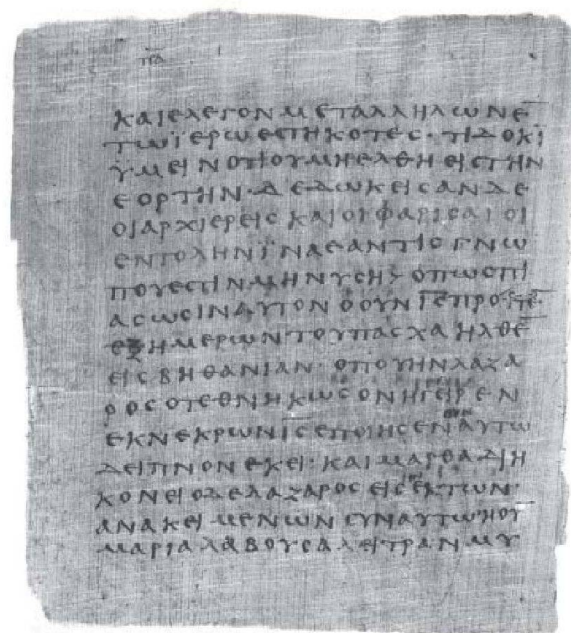 πα
καιελεγονμεταλληλωνε̅
τωϊερωεϲτηκοτεϲ· τιδοκι
ϋμεινοτιουμηελθηειϲτην
εορτην· δεδωκειϲανδε
οιαρχιερειϲκαιοιφαριϲαιοι
εντοληνϊναεαντιϲγνω
πουεϲτινμηνυϲη> οπωϲπι
αϲωϲιναυτονοουνι̅ϲ̅προ
εξημερωντουπαϲχαηλθε̅
ειϲβηθανιαν· οπουηνλαζα
ροϲοτεθνηκωϲονηγειρεν
εκνεκρωνι̅ϲ̅εποιηϲεναυτω
δειπνονεκει· καιμαρθαδιη
κονειοδελαζαροϲειϲεκτων·
ανακειμενωνϲυναυτωηου̅
μαριαλαβουϲαλειτρανμυ